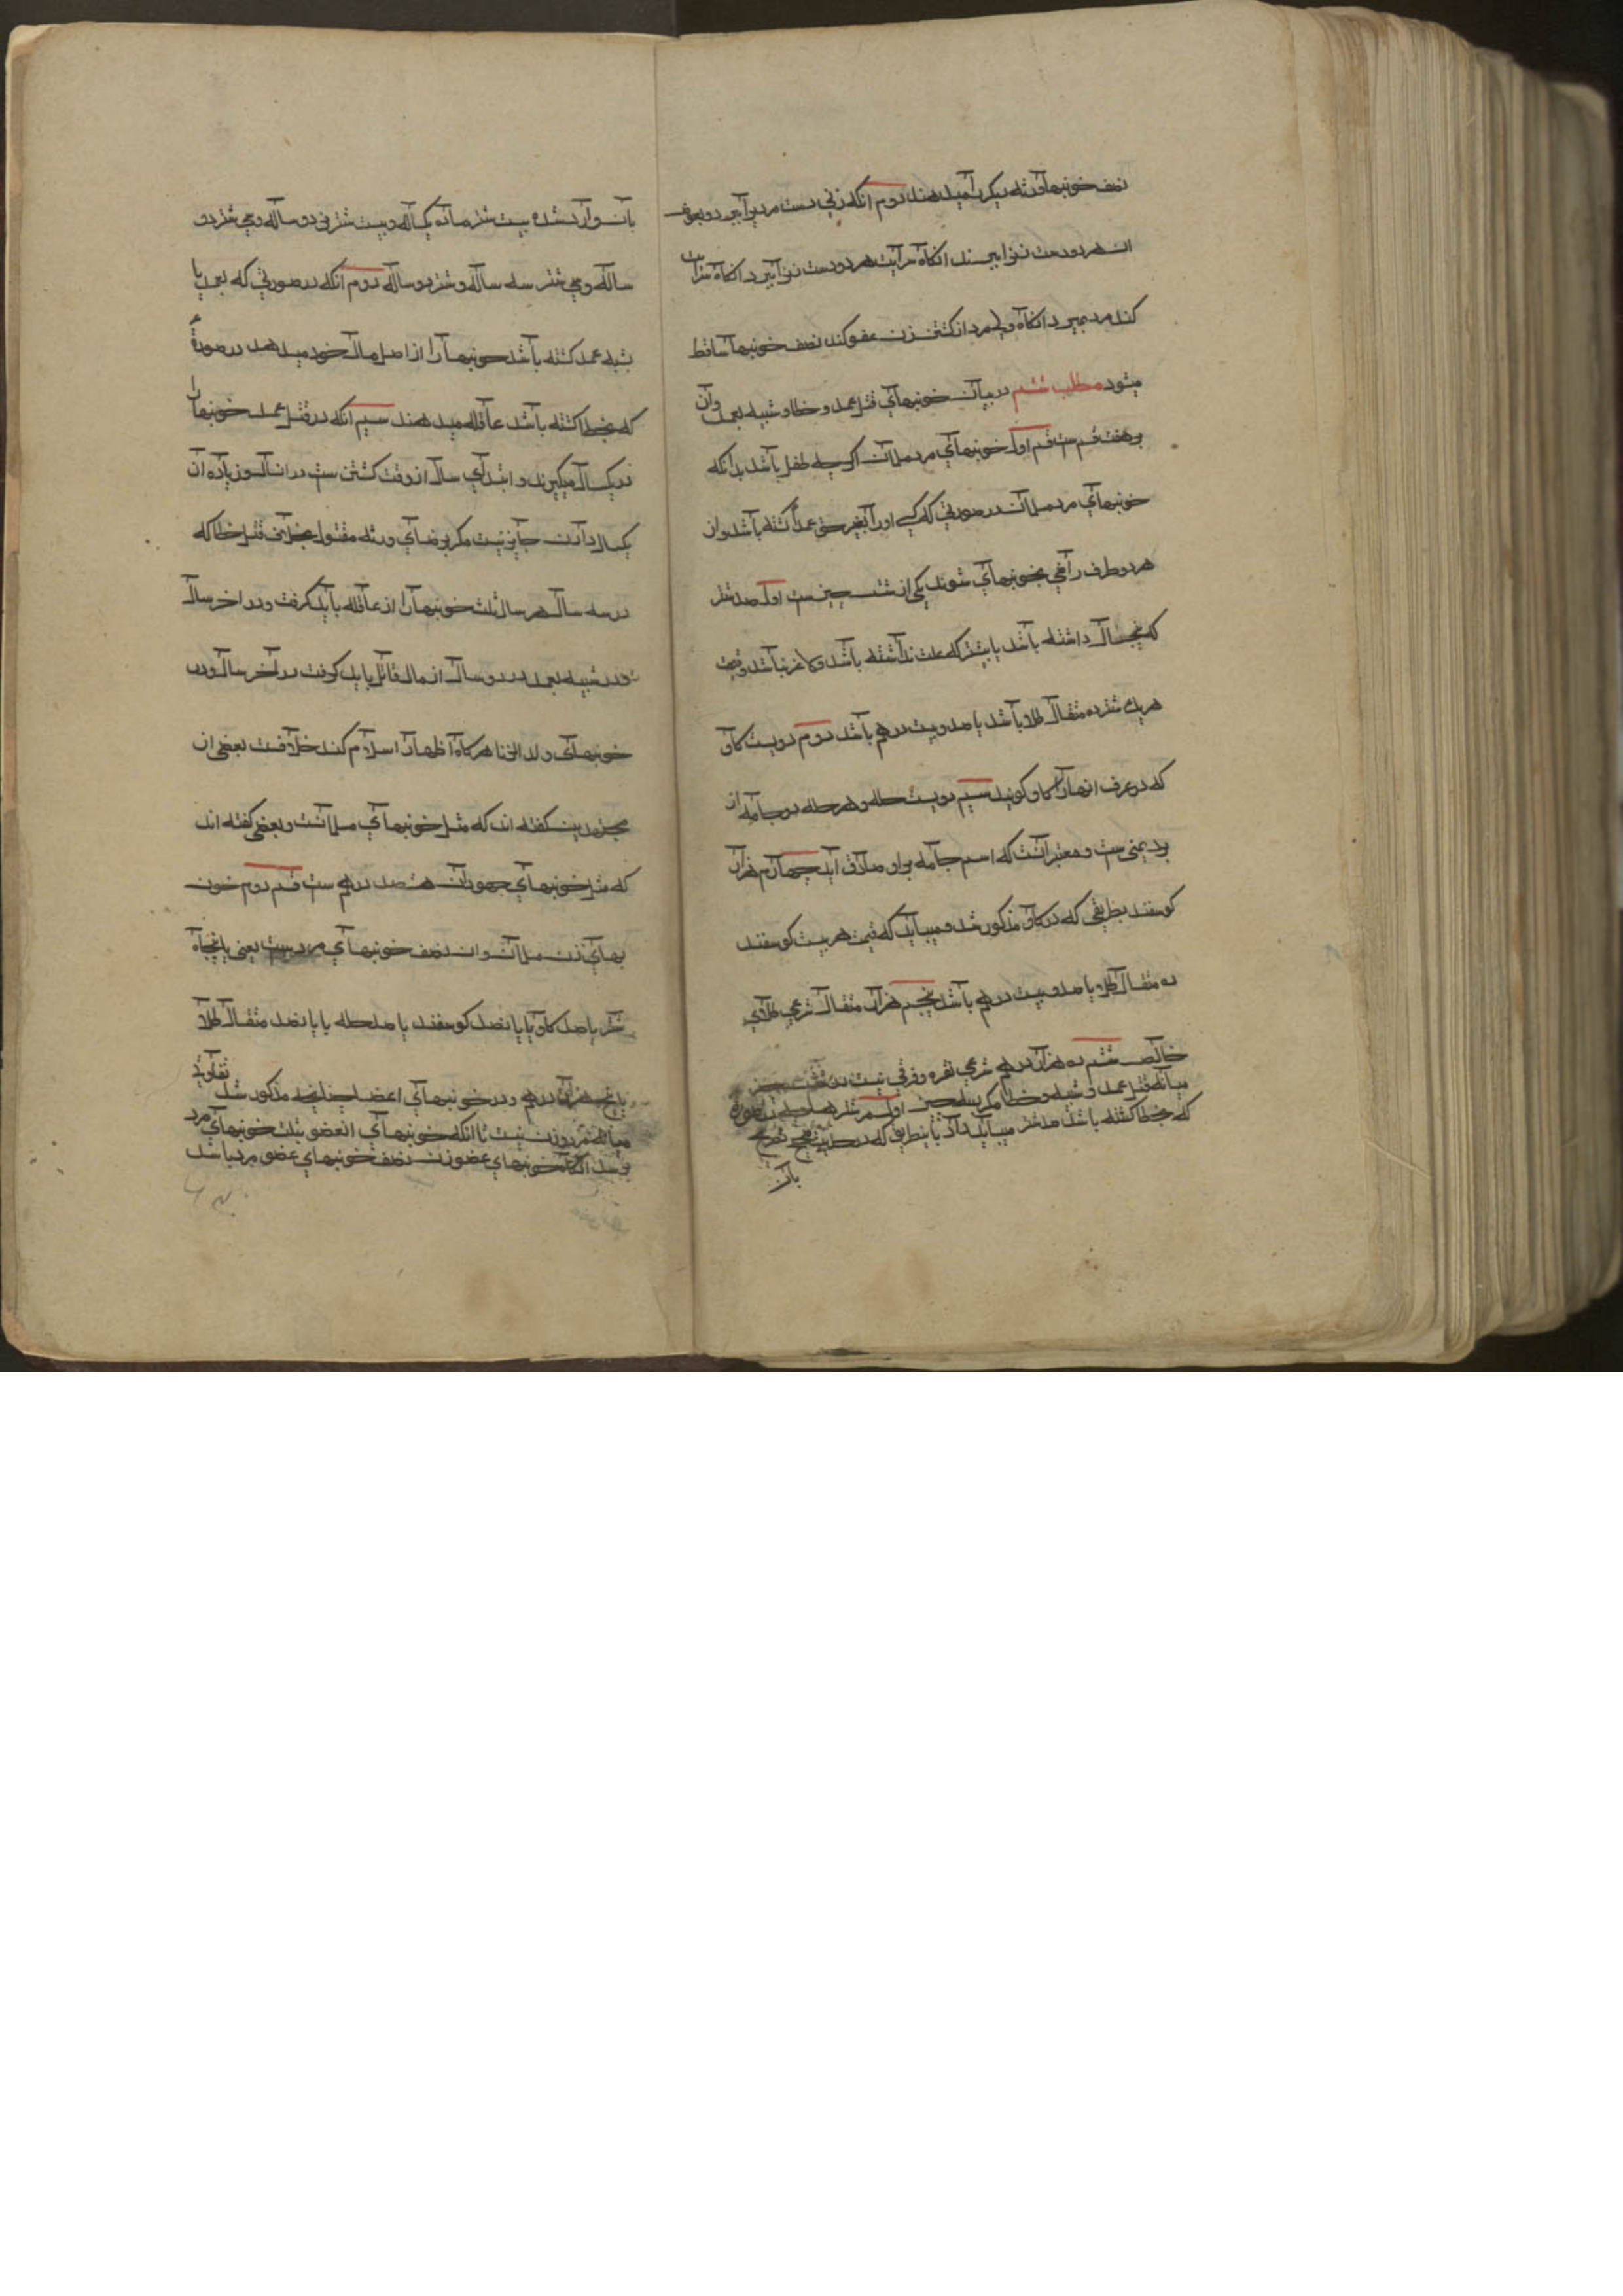 نصف خونبها ورثه دیکر را میدهند دوم انکه زنی دست مردیرا ببرد و بعوض
ان هر دو دست زنرا ببرند انکاه سرایت هر دو دست زنرا ببرد انکاه سرایت
کند مرد بمیرد انکاه ولی مرد از کشتن زن عفو کند نصف خونبها ساقط
میشود مطلب ششم در بیان خونبهای قتل عمد و خطا و شبیه بعمد وان
بر هفت قسم ست قسم اول خونبهای مرد مسلمان اکرچه طفل باشد بدانکه
خونبهای مرد مسلمان در صورتی که کسی اورا بغیر حق عمداً کشته باشد وان
هر دو طرف راضی بخونبهای شوند یکی از شش چیز ست اول صد شتر
که پنجسال داشته باشد یا بیشتر که علت نداشته باشد و لاغر نباشد و قیمت
هر یک شتر ده مثقال طلا باشد یا صد و بیست درهم باشد دوم دویست کاو
که در عرف انها را کاو کویند سیم دویست حله و هر حله دو جامه از
برد یمنی ست و معتبر انست که اسم جامه بر او صادق اید چهارم هزار
کوسفند بطریقی که در کاو مذکور شد و میباید که قیمت هر بیست کوسفند
ده مثقال طلا یا صد و بیست درهم باشد پنجم هزار مثقال شرعی طلای
خالص ششم ده هزار درهم شرعی نقره و فرقی نیست در شش چیز
میانه قتل عمد و شبیه و خطا مکر بسه چیز اول در شتر
که بخطا کشته باشد صد شتر میباید داد باینطریق که در حدیث صحیح
بان
بان وارد شده بیست شتر ماده یکساله و بیست شتر نر دو ساله و سی شتر دو
ساله و سی شتر سه ساله و شتر دو ساله دوم انکه در صورتی که بعمد یا
شبه عمد کشته باشد خونبها را از اصل مال خود میدهد در صورة
که بخطا کشته باشد عاقله میدهند سیم انکه در قتل عمد خونبها را
در یکسال میکیرند و ابتدای سال از وقت کشتن ست در انسال و زیاده ان
یکسال دادن جایز نیست مکر برضای ورثه مقتول بخلاف قتل خطا که
در سه سال هر سال ثلث خونبها را از عاقله باید کرفت و در اخر سال
و در شبیه بعمد در دو سال از مال قاتل باید کرفت در آخر سال و در
خونبهای ولد الزنا هرکاه اظهار اسلام کند خلافست بعضی از
مجتهدین کفته اند که مثل خونبهای مسلمانست و بعضی کفته اند
که مثل خونبهای جهودان هشتصد درهم ست قسم دوم خون
بهای زن مسلمان وان نصف خونبهای مرد ست یعنی پانجاه
شتر یا صد کاو یا پانصد کوسفند یا صد حله یا پانصد مثقال طلا
یا پنجهزار درهم و در خونبهای اعضا چنانچه مذکور شد تفاوتی
میانه مرد و زن نیست تا انکه خونبهای انعضو بثلث خونبهای مرد
برسد انکاه خونبهای عضو زن نصف خونبهای عضو مرد باشد